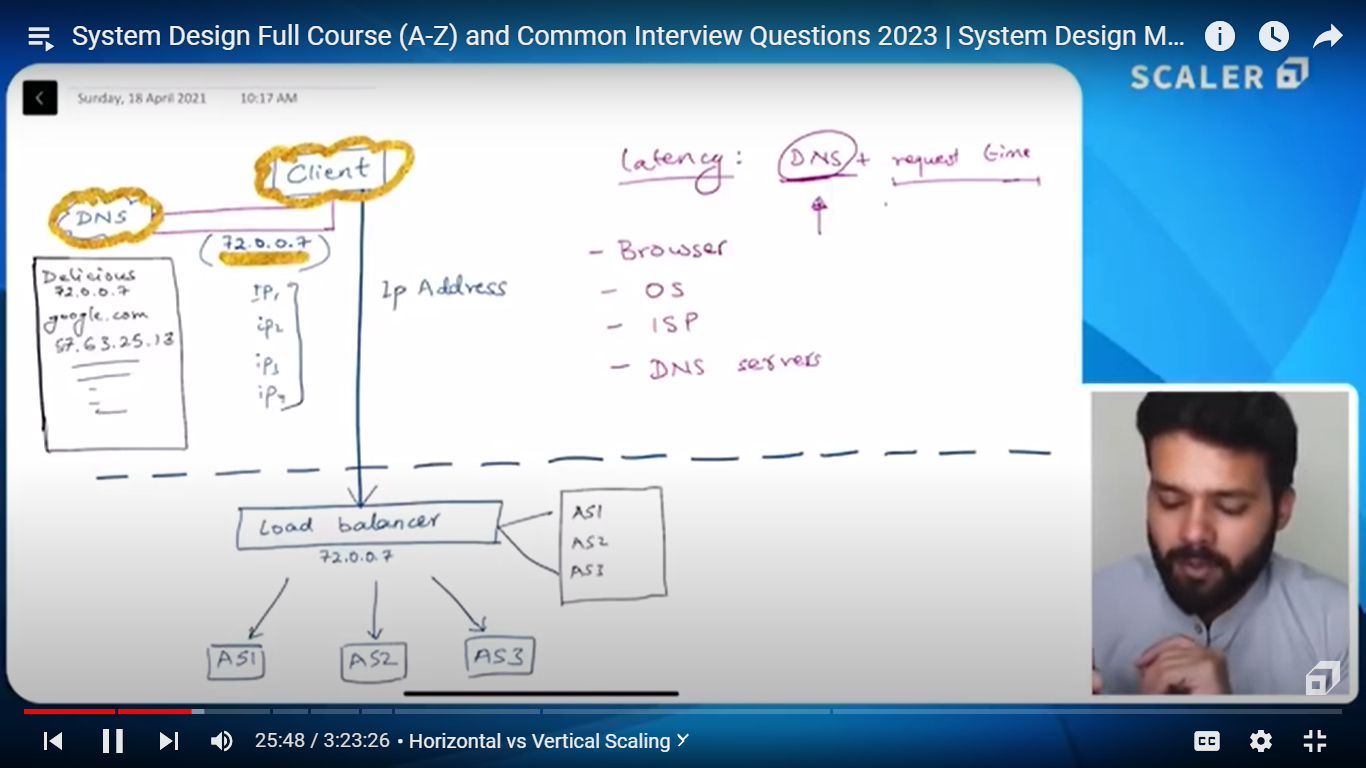 System Design Full Course (A-Z) and Common Interview Questions 2023 | System Design M...
SCALER
Sunday, 18 April 2021 10:17 AM
Client
DNS
(72.0.0.7)
Delicious
72.0.0.7
google.com
67.63.25.13
IP1
ip2
ip3
ip4
Ip Address
Latency: DNS + request time
- Browser
- OS
- ISP
- DNS servers
Load balancer
72.0.0.7
AS1
AS2
AS3
AS1 AS2 AS3
25:48 / 3:23:26 • Horizontal vs Vertical Scaling
CC